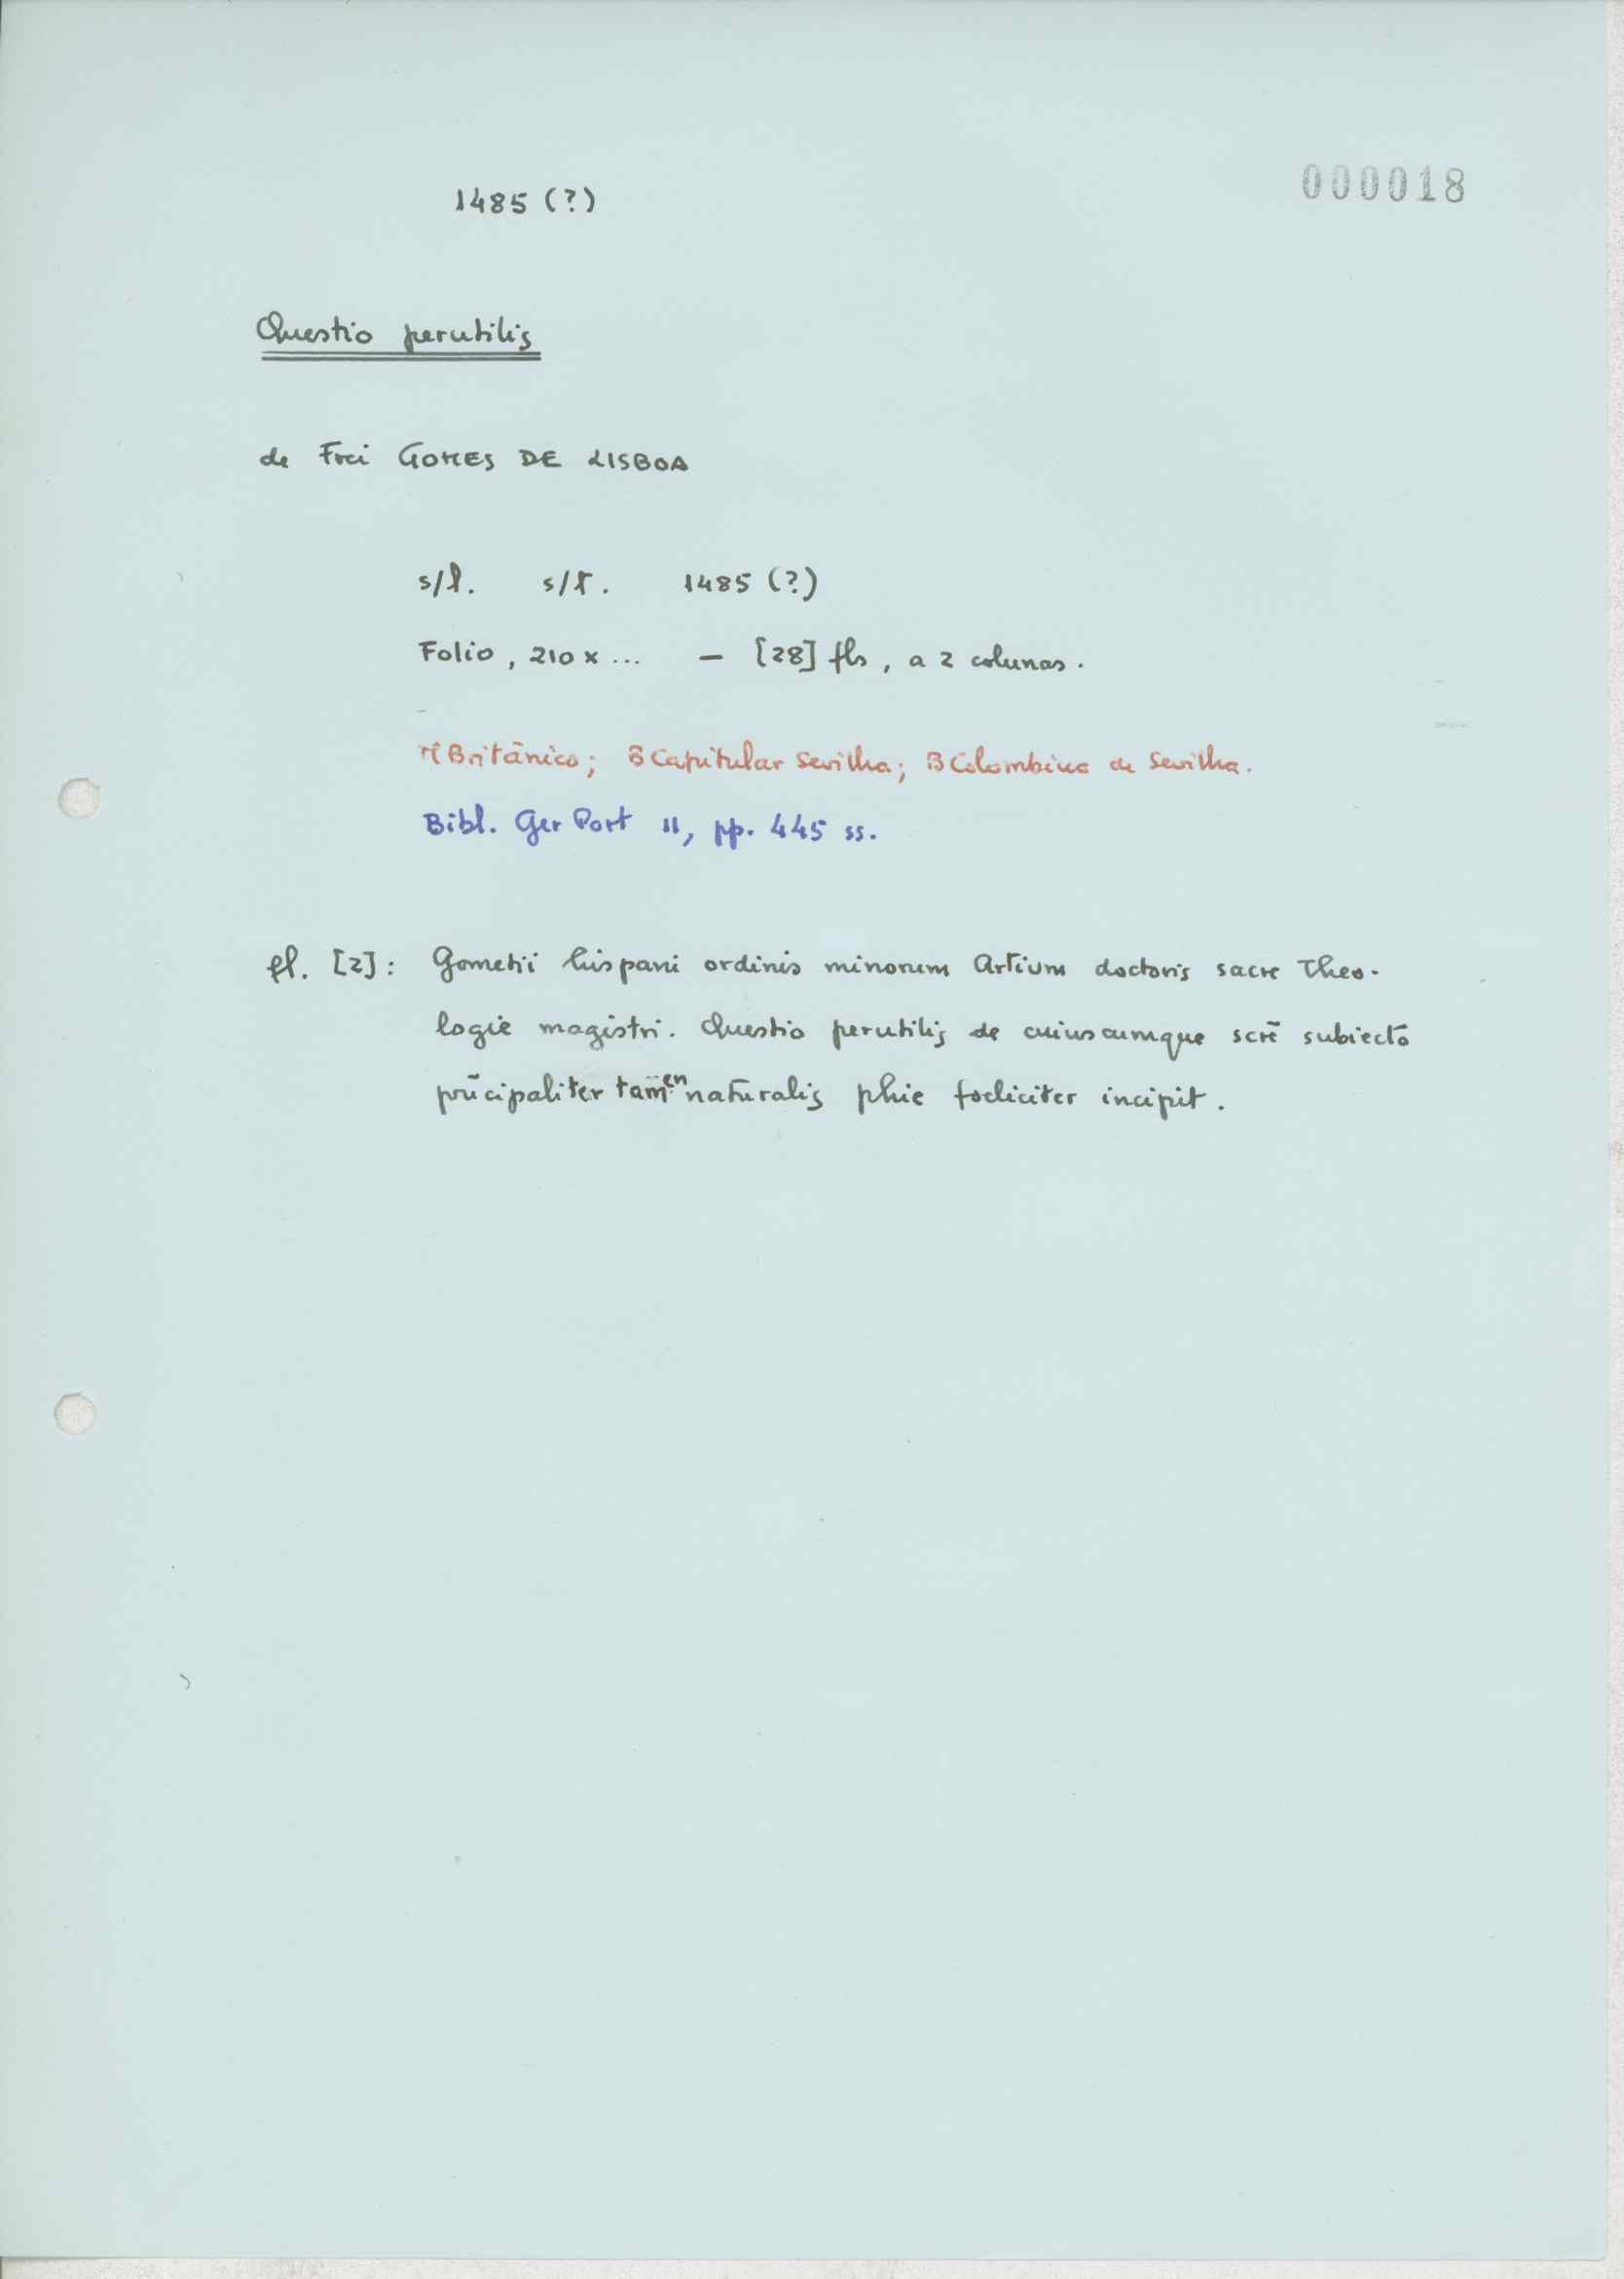 000018
1485 (?)
Questio perutilis
de Frei GOMES DE LISBOA
s/l. s/t. 1485 (?)
Folio, 210 x ... — [28] fls, a 2 colunas.
M Britânico; B Capitular Sevilha; B Colombina de Sevilha.
Bibl. Ger Port II, pp. 445 ss.
fl. [2]: Gometii hispani ordinis minorum Artium doctoris sacre Theo-
logie magistri. Questio perutilis de cuiuscumque scie̅ subiecto
pri̅cipaliter tamen naturalis phie foeliciter incipit.